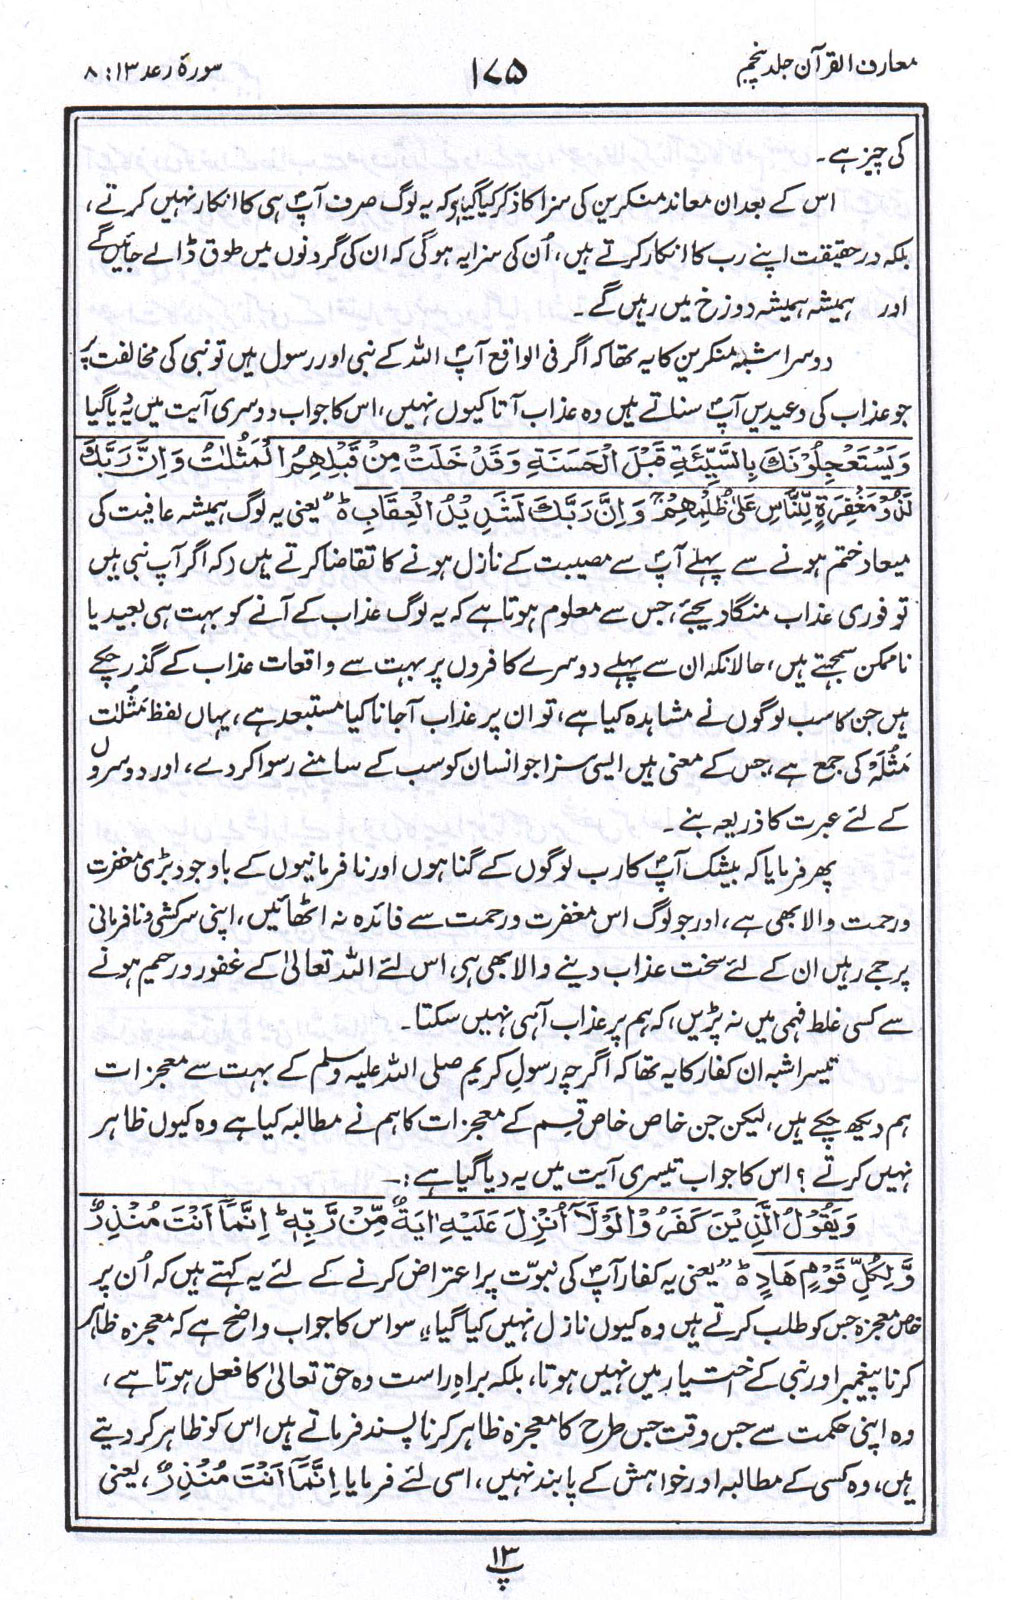 معارف القرآن جلد پنجم
۱۷۵
سورۂ رعد ۱۳ : ۸
کی چیز ہے۔
اس کے بعد ان معاند منکرین کی سزا کا ذکر کیا گیا ہو کہ یہ لوگ صرف آپؐ ہی کا انکار نہیں کرتے،
بلکہ درحقیقت اپنے رب کا انکار کرتے ہیں، اُن کی سزا یہ ہوگی کہ ان کی گردنوں میں طوق ڈالے جائیں گے
اور ہمیشہ ہمیشہ دوزخ میں رہیں گے۔
دوسرا شبہ منکرین کا یہ تھا کہ اگر فی الواقع آپؐ اللہ کے نبی اور رسول ہیں تو نبی کی مخالفت پر
جو عذاب کی وعیدیں آپؐ سناتے ہیں وہ عذاب آتا کیوں نہیں، اس کا جواب دوسری آیت میں یہ دیا گیا
وَيَسْتَعْجِلُوْنَكَ بِالسَّيِّئَةِ قَبْلَ الْحَسَنَةِ وَقَدْ خَلَتْ مِنْ قَبْلِهِمُ الْمَثُلٰتُ وَاِنَّ رَبَّكَ
لَذُوْ مَغْفِرَةٍ لِّلنَّاسِ عَلٰى ظُلْمِهِمْ ۚ وَاِنَّ رَبَّكَ لَشَدِيْدُ الْعِقَابِ ۝ "یعنی یہ لوگ ہمیشہ عافیت کی
میعاد ختم ہونے سے پہلے آپؐ سے مصیبت کے نازل ہونے کا تقاضا کرتے ہیں (کہ اگر آپ نبی ہیں
تو فوری عذاب منگا دیجئے، جس سے معلوم ہوتا ہے کہ یہ لوگ عذاب کے آنے کو بہت ہی بعید یا
ناممکن سمجھتے ہیں، حالانکہ ان سے پہلے دوسرے کافروں پر بہت سے واقعات عذاب کے گذر چکے
ہیں جن کا سب لوگوں نے مشاہدہ کیا ہے، تو ان پر عذاب آجانا کیا مستبعد ہے، یہاں لفظ مَثُلٰت
مَثُلَہ کی جمع ہے، جس کے معنی ہیں ایسی سزا جو انسان کو سب کے سامنے رسوا کر دے، اور دوسروں
کے لئے عبرت کا ذریعہ بنے۔
پھر فرمایا کہ بیشک آپؐ کا رب لوگوں کے گناہوں اور نافرمانیوں کے باوجود بڑی مغفرت
ورحمت والا بھی ہے، اور جو لوگ اس مغفرت ورحمت سے فائدہ نہ اٹھائیں، اپنی سرکشی ونافرمانی
پر جمے رہیں ان کے لئے سخت عذاب دینے والا بھی ہی، اس لئے اللہ تعالیٰ کے غفور ورحیم ہونے
سے کسی غلط فہمی میں نہ پڑیں، کہ ہم پر عذاب آہی نہیں سکتا۔
تیسرا شبہ ان کفار کا یہ تھا کہ اگرچہ رسولِ کریم صلی اللہ علیہ وسلم کے بہت سے معجزات
ہم دیکھ چکے ہیں، لیکن جن خاص خاص قسم کے معجزات کا ہم نے مطالبہ کیا ہے وہ کیوں ظاہر
نہیں کرتے؟ اس کا جواب تیسری آیت میں یہ دیا گیا ہے :۔
وَيَقُوْلُ الَّذِيْنَ كَفَرُوْا لَوْلَآ اُنْزِلَ عَلَيْهِ اٰيَةٌ مِّنْ رَّبِّهٖ ۭ اِنَّمَآ اَنْتَ مُنْذِرٌ
وَّلِكُلِّ قَوْمٍ هَادٍ ۝ "یعنی یہ کفار آپؐ کی نبوّت پر اعتراض کرنے کے لئے یہ کہتے ہیں کہ اُن پر
خاص معجزہ جس کو طلب کرتے ہیں وہ کیوں نازل نہیں کیا گیا" سو اس کا جواب واضح ہے کہ معجزہ ظاہر
کرنا پیغمبر اور نبی کے اختیار میں نہیں ہوتا، بلکہ براہِ راست وہ حق تعالیٰ کا فعل ہوتا ہے،
وہ اپنی حکمت سے جس وقت جس طرح کا معجزہ ظاہر کرنا پسند فرماتے ہیں اس کو ظاہر کر دیتے
ہیں، وہ کسی کے مطالبہ اور خواہش کے پابند نہیں، اسی لئے فرمایا اِنَّمَآ اَنْتَ مُنْذِرٌ، یعنی
۱۳
پ